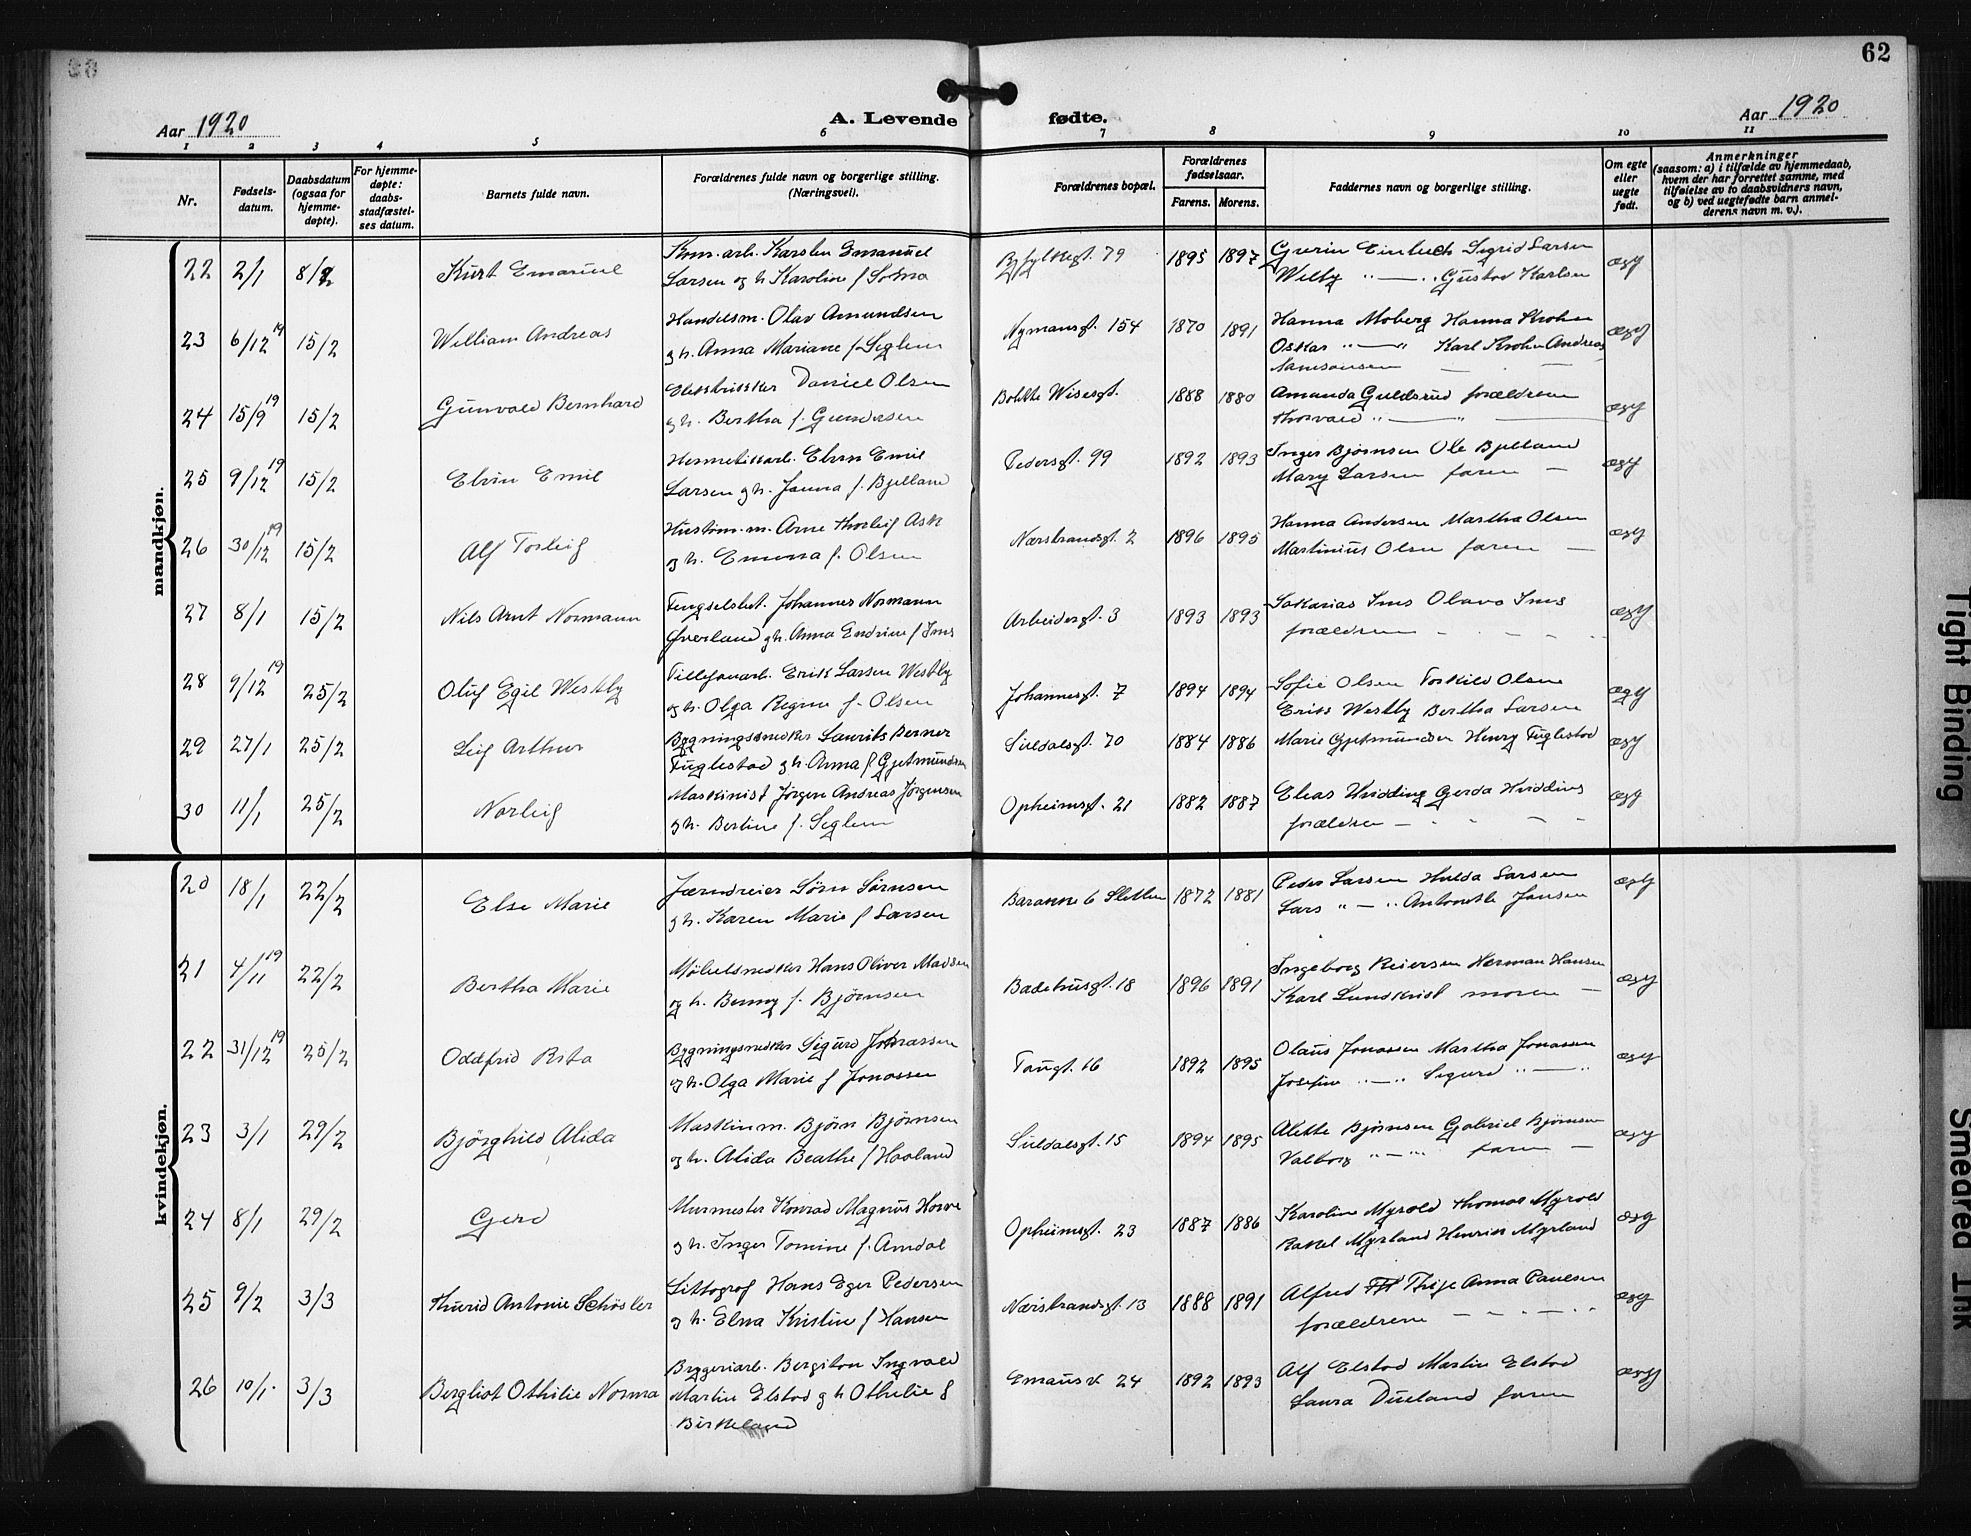 62
Aar 1920
A. Levende fødte.
Aar 1920
1 2 3 4 5 6 7 8 9 10 11
Nr.
Fødsels-
datum.
Daabsdatum
(ogsaa for
hjemme-
døpte).
For hjemme-
døpte:
daabs-
stadfæstel-
ses datum.
Barnets fulde navn.
Forældrenes fulde navn og borgerlige stilling.
(Næringsvei).
Forældrenes bopæl.
Forældrenes
fødselsaar.
Farens. Morens.
Faddernes navn og borgerlige stilling.
Om egte
eller
uegte
født.
Anmerkninger
(saasom: a) i tilfælde av hjemmedaab,
hvem der har forrettet samme, med
tilføielse av to daabsvidners navn,
og b) ved uegtefødte barn anmel-
derens navn m. v.).
mandkjøn.
22 2/1 8/2 Kurt Emanuel
Kom. arb. Karsten Emanuel
Larsen og h. Karoline f.
79 1895 1897
Sigrid Larsen
Welby " — " Gustav Karlsen
ægt
23 6/12 19 15/2 William Andreas
Handelsm. Olav Amundsen
og h. Anna Mariane f. Seglem
Nymansgt. 154 1870 1891
Hanna Moberg Hanna Krohn
Oskar " — " Karl Krohn Andreas
ægt
24 15/9 19 15/2 Gunvald Bernhard
Elektrikker Daniel Olsen
og h. Bertha f. Gundersen
Wisesgt. 1888 1880
Amanda Guldsrud forældrene
Thorvald " — "
ægt
25 9/12 19 15/2 Elvin Emil
Hermetikkarb. Elvin Emil
Larsen og h. Janna f. Bjelland
Pedersgt. 99 1892 1893
Inger Bjørnsen Ole Bjelland
Mary Larsen faren —
ægt
26 30/12 19 15/2 Alf Torleif
Arne Thorleif Ask
og h. Emma f. Olsen
Nærstrandsgt. 2 1896 1895
Hanna Andersen Martha Olsen
Martinius Olsen faren —
ægt
27 8/1 15/2 Nils Arnt Normann
Fengselsbet. Johannes Normann
Øverland og h. Anna Endrine f. Ims
Arbeidergt. 3 1893 1893
Sakarias Ims Olava Ims
forældrene
ægt
28 9/12 19 25/2 Oluf Egil Westby
Tillefonarb. Erik Larsen Westby
og h. Olga Regine f. Olsen
Johannesgt. 7 1894 1894
Sofie Olsen Torkild Olsen
Erik Westby Bertha Larsen
ægt
29 27/1 25/2 Leif Arthur
Bygningssnedker Laurits Berner
Fuglestad og h. Anna f. Gjetmundsen
Suldalsgt. 70 1884 1886
Marie Gjetmundsen Henry Fuglestad
ægt
30 11/1 25/2 Norleif
Maskinist Jørgen Andreas Jørgensen
og h. Bertine f. Seglem
Opheimsgt. 21 1882 1887
Elias Hvidding Gerda Hvidding
forældren —
ægt
kvindekjøn.
20 18/1 22/2 Else Marie
Jærndreier Sørn Sørnsen
og h. Karen Marie f Larsen
Barakke 6 Sletten 1872 1881
Peder Larsen Hulda Larsen
Lars " — " Antonette Jansen
ægt
21 4/11 19 22/2 Bertha Marie
Møbelsnedker Hans Oliver Madsen
og h. Benny f. Bjørnsen
Badehusgt. 18 1896 1891
Ingeborg Reiersen Herman Hansen
Karl Lundkvist moren —
ægt
22 31/12 19 25/2 Oddfrid Rita
Bygningsnedker Sigurd Jonassen
og h. Olga Marie f Jonassen
Taugt. 16 1892 1895
Olaus Jonassen Martha Jonassen
Josefine " — " Sigurd " — "
ægt
23 3/1 29/2 Bjørghild Alida
Maskinm. Bjørn Bjørnsen
og h. Alida Beathe f Haaland
Suldalsgt. 15 1894 1895
Alette Bjørnsen Gabriel Bjørnsen
Valborg " — " faren —
ægt
24 8/1 29/2 Gerd
Murmester Konrad Magnus Horve
og h. Inger Tomine f. Amdal
Opheimsgt. 23 1887 1886
Karoline Myrold Thomas Myrold
Rakel Myrland Henrik Myrland
ægt
25 9/2 3/3 Thurid Antonie Schøsler
Littograf Hans Eger Pedersen
og h. Elna Kristine f Hansen
Nærstrandsgt. 13 1888 1891
Alfred Thije Anna Paulsen
forældrene
ægt
26 10/1 3/3 Bergliot Othilie Norma
Bryggeriarb. Bergiton Ingvald
Martin Elstad og h Othilie f
Birkeland
Emausv. 24 1892 1893
Alf Elstad Martin Elstad
Laura Dueland faren
ægt
Tight Binding
Smeared Ink